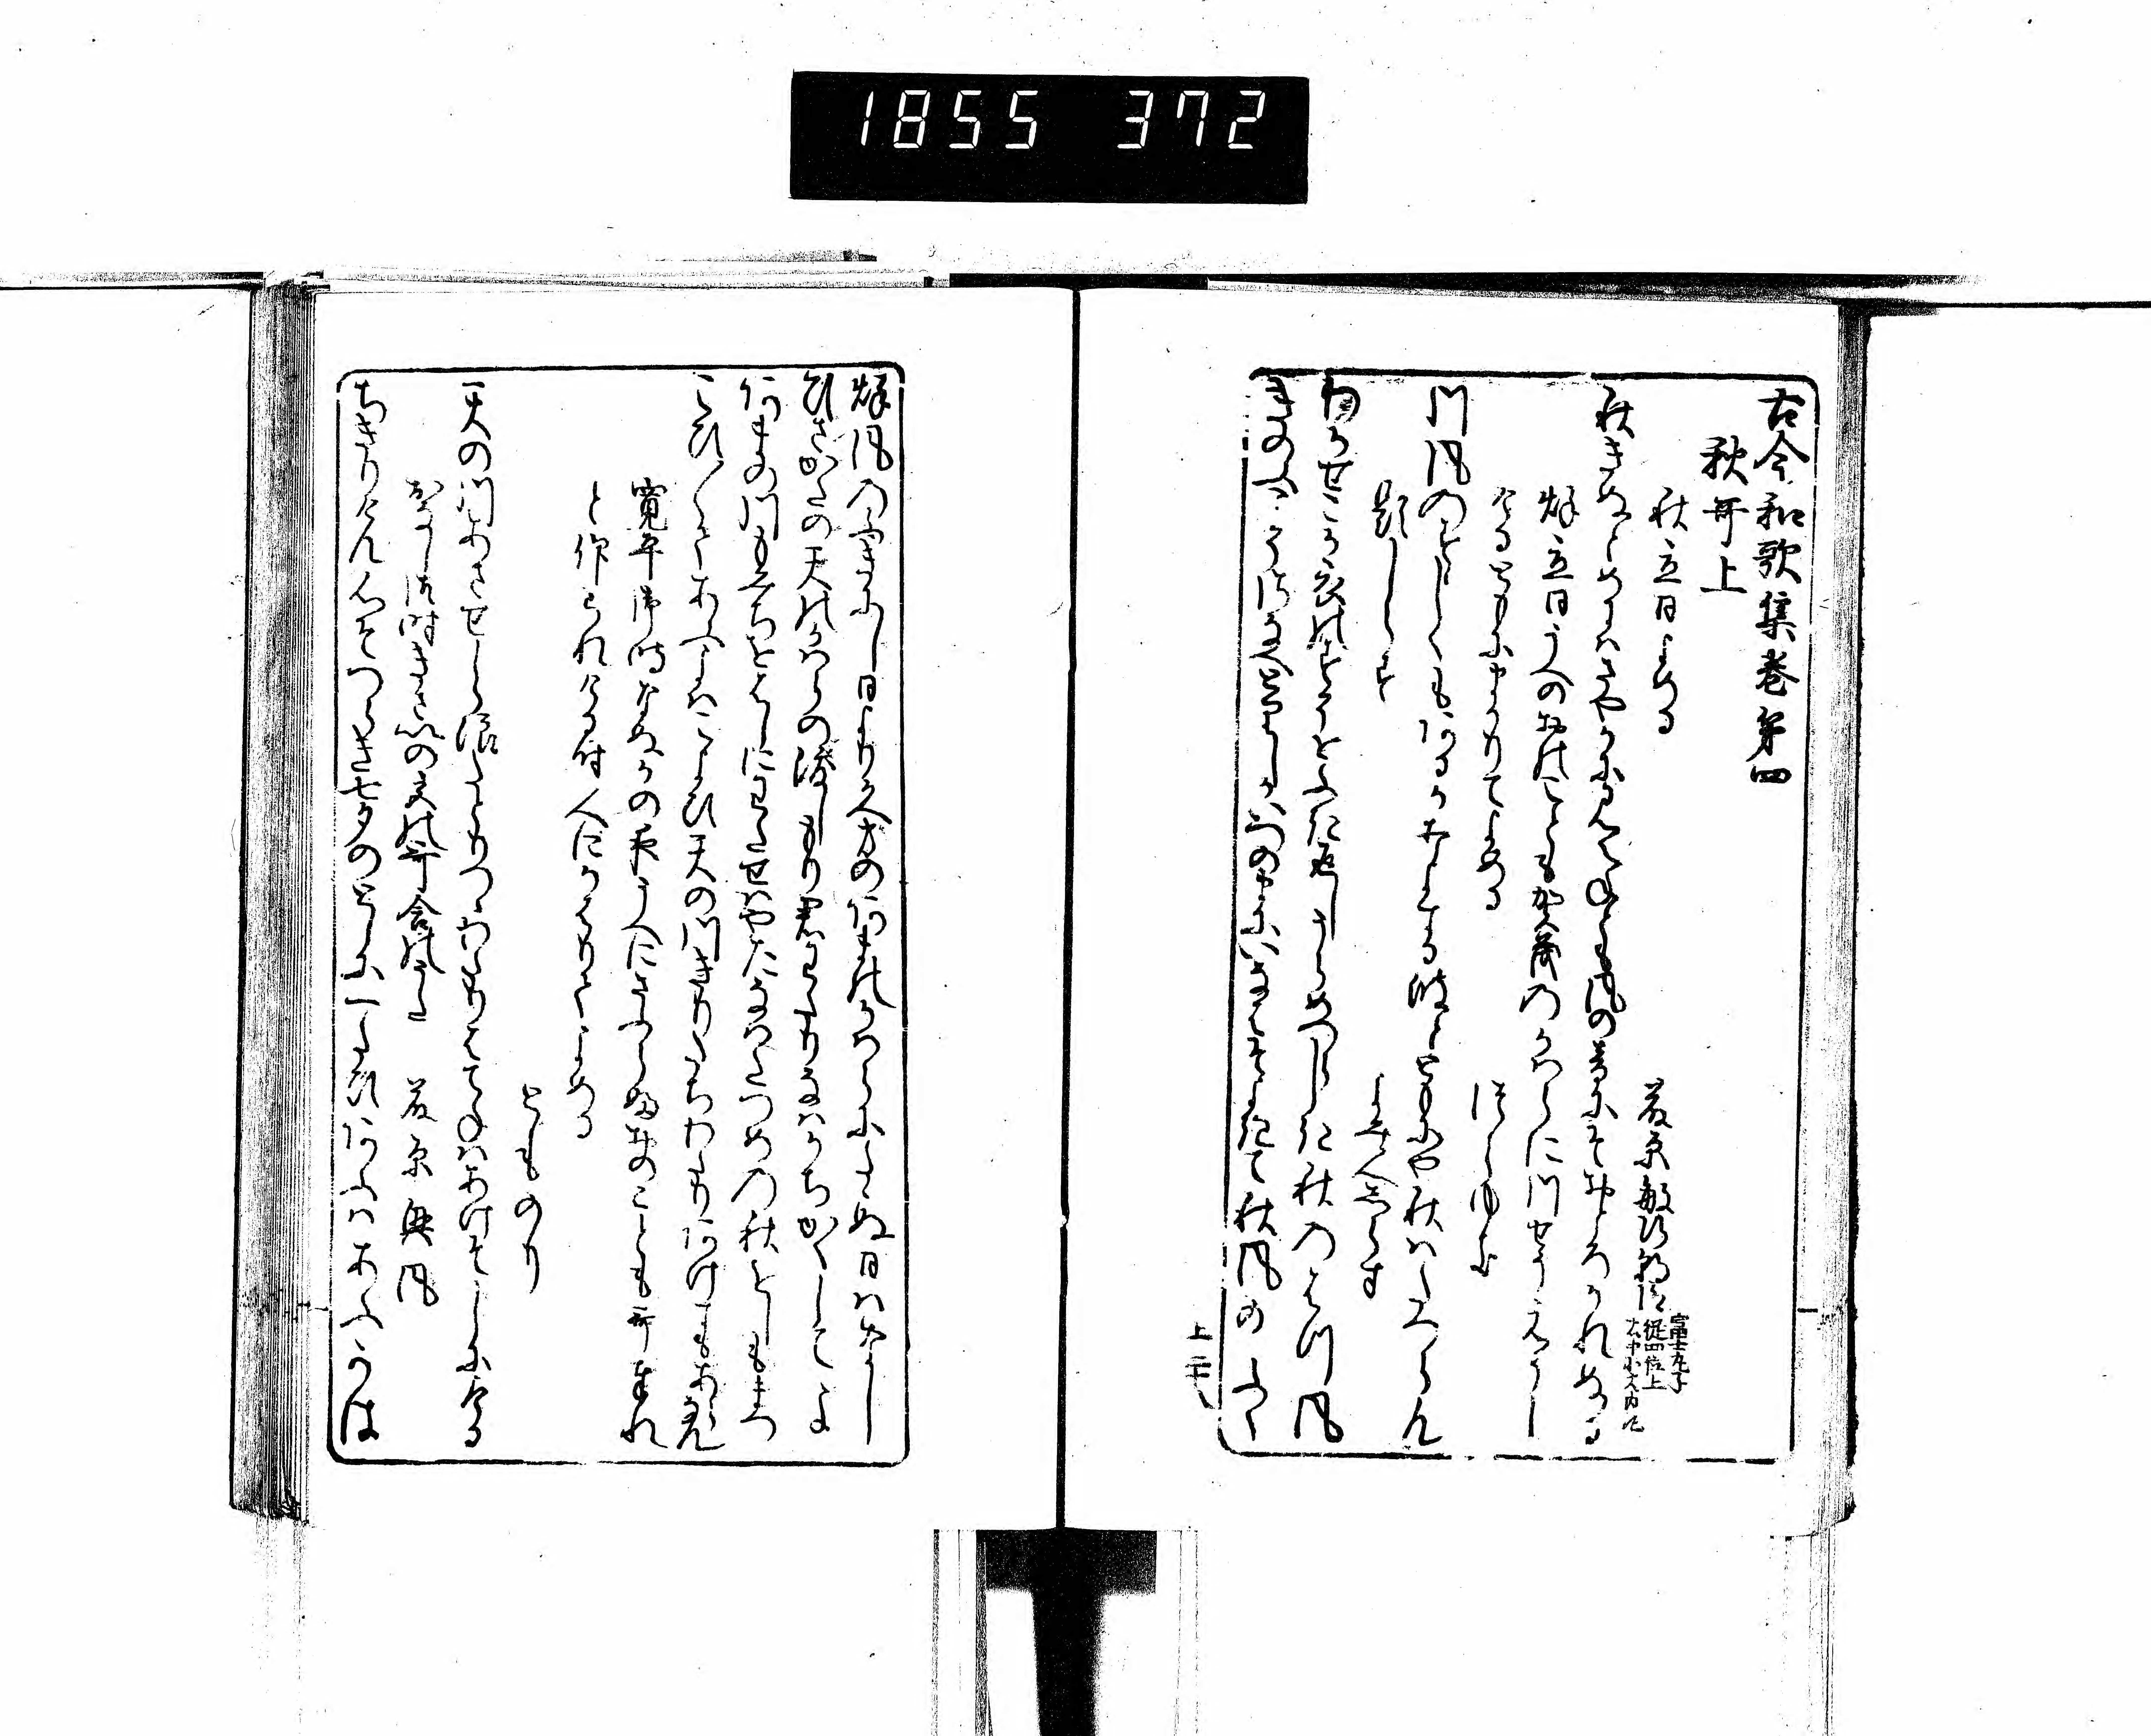 1855 372
古今和歌集巻第四
秋哥上
秋立日よめる
藤原敏行朝臣
富士丸子
従四位上
秋きぬとめにはさやかに見えねとも風の音にそおとろかれぬる
秌立日うへのおのこともかものかはらに川せうえうし
けるともにまかりてよめる
つらゆき
川風のすゝしくもあるかうちよする浪とともにや秋はたつらん
題しらす
よみ人しらす
わかせこか衣のすそを吹返しうらめつらしき秋のはつ風
きのふこそさなへとりしかいつのまにいなはそよきて秋風のふく
上二十八
秌風のふきにし日より久方のあまのかはらにたゝぬ日はなし
ひさかたの天のかはらの渡しもり君わたりなはかちかくしてよ
あまの川もみちをはしにわたせはやたなはたつめの秋をしもまつ
こひ〳〵てあふよはこよひ天の川きりたちわたりあけすもあらなん
寛平御時なぬかの夜うへにさふらふおのことも哥奉れ
と仰られける時人にかはりてよめる
とものり
天の川あさせしら浪たとりつゝわたりはてねはあけそしにける
おなし御時きさいの宮の哥合のうた
藤原興風
ちきりけん心そつらき七夕のとしに一たひあふはあふかは